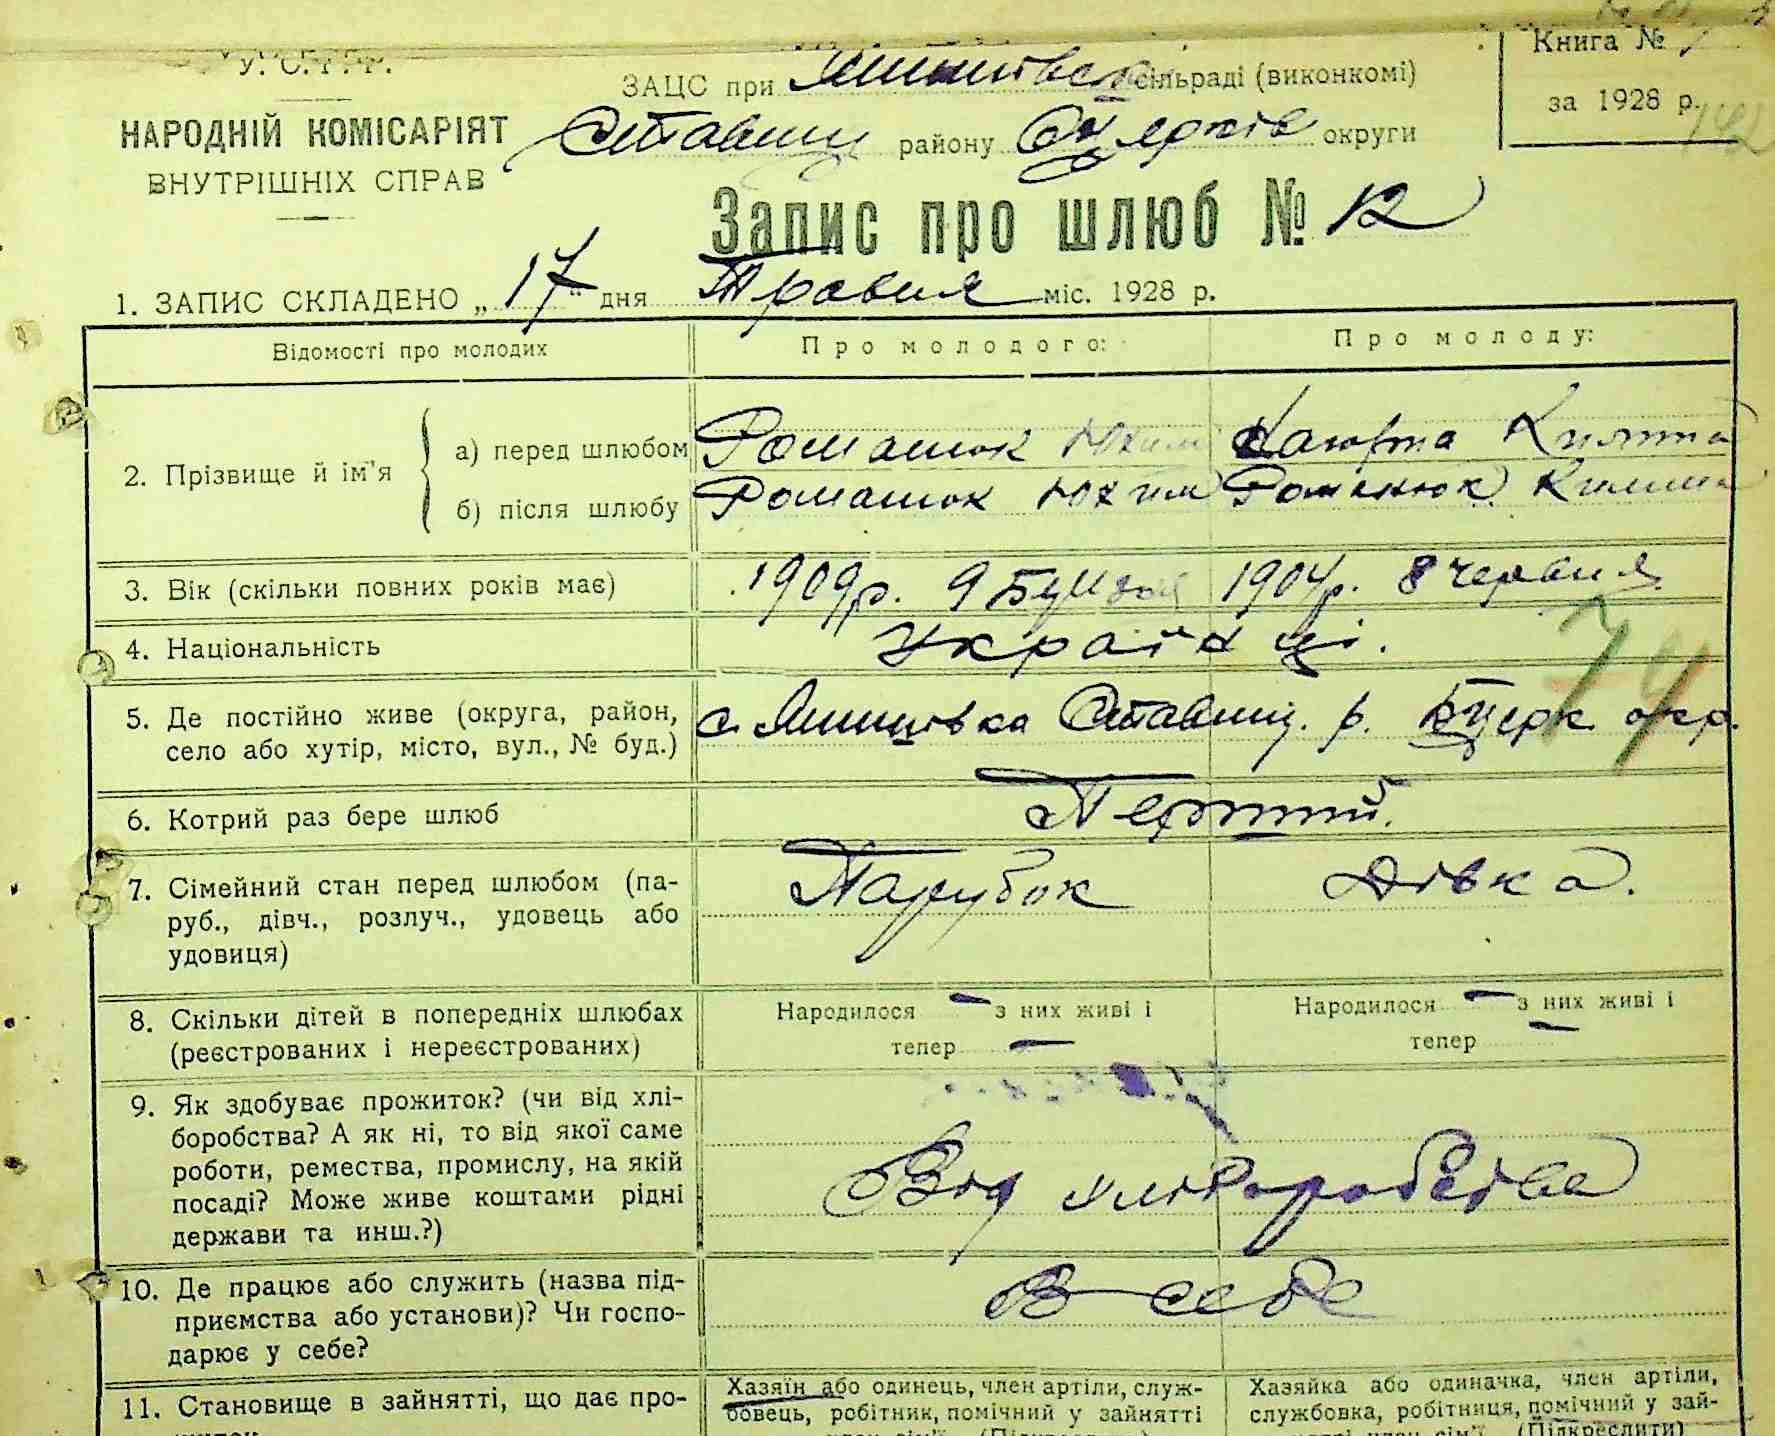 У. С. Р. Р.
Книга №
ЗАЦС при сільраді (виконкомі)
за 1928 р.
НАРОДНІЙ КОМІСАРІЯТ
Ставищ району Б. Церків округи
ВНУТРІШНІХ СПРАВ
Запис про шлюб № 12
1. ЗАПИС СКЛАДЕНО „ 17 “ дня Травня міс. 1928 р.
Відомості про молодих Про молодого: Про молоду:
2. Прізвище й ім'я
а) перед шлюбом Романюк Юхим
б) після шлюбу Романюк Юхим Романюк
3. Вік (скільки повних років має) 1909 р. 9 1904 р. 8 червня
4. Національність Українці.
5. Де постійно живе (округа, район, село або хутір, місто, вул., № буд.) с. Янишівка Ставищ. р. БЦерк окр.
6. Котрий раз бере шлюб Перший.
7. Сімейний стан перед шлюбом (па- Парубок Дівка.
руб., дівч., розлуч., удовець або
удовиця)
8. Скільки дітей в попередніх шлюбах Народилося – з них живі і Народилося – з них живі і
(реєстрованих і нереєстрованих) тепер – тепер –
9. Як здобуває прожиток? (чи від хлі-
боробства? А як ні, то від якої саме
роботи, ремества, промислу, на якій Від хліборобства
посаді? Може живе коштами рідні
держави та инш.?)
10. Де працює або служить (назва під- В себе
приємства або установи)? Чи госпо-
дарює у себе?
11. Становище в зайнятті, що дає про- Хазяїн або одинець, член артіли, служ- Хазяйка або одиначка, член артіли,
бовець, робітник, помічний у зайнятті службовка, робітниця, помічний у зай-
(Підкреслити) (Підкреслити)